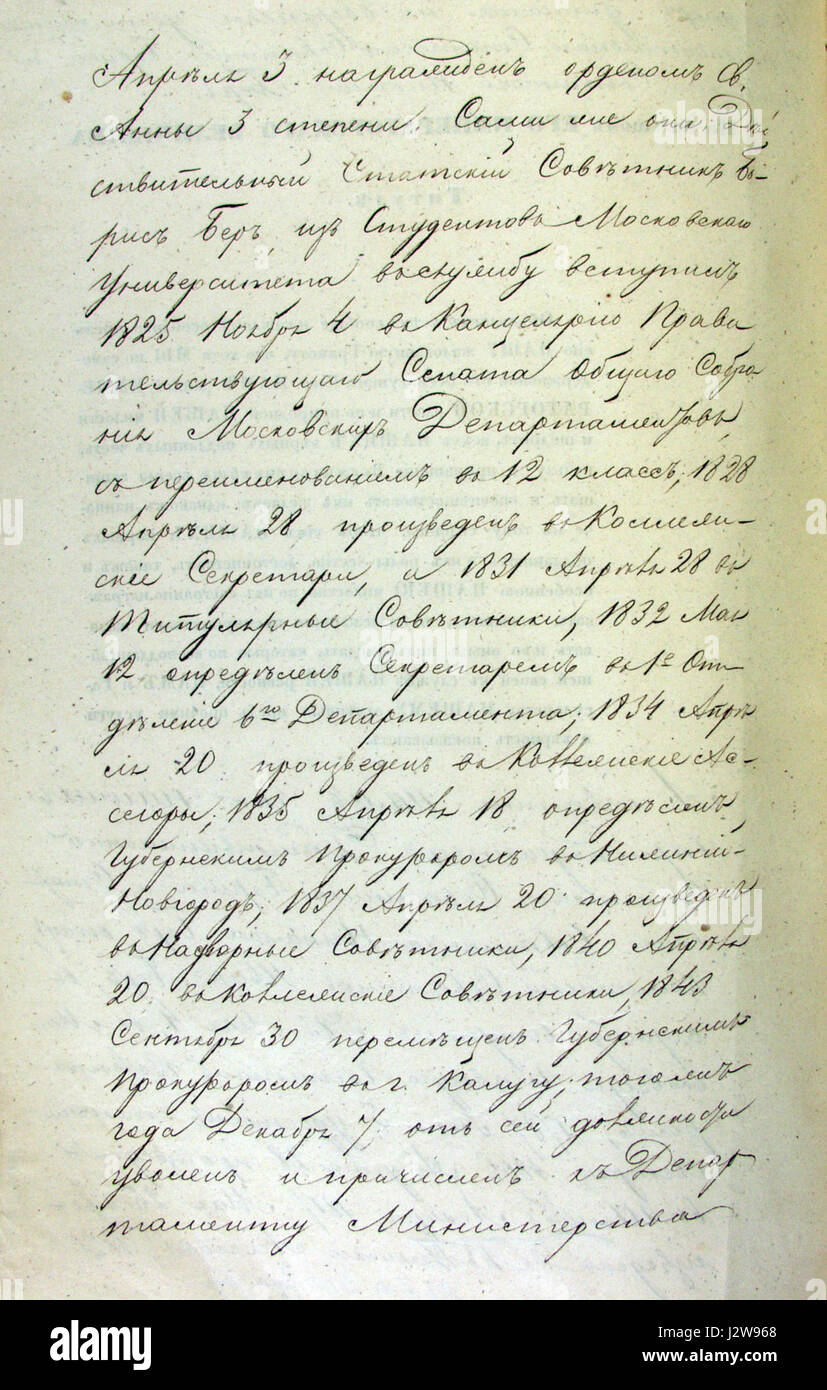 Апрѣля 3 награжденъ орденомъ Св.
Анны 3 степени. Самъ же онъ Дѣй
ствительный Статскій Совѣтникъ Бо-
рисъ Беръ, изъ Студентовъ Московскаго
Университета въ службу вступилъ
1825 Ноября 4 въ Канцелярію Прави
тельствующаго Сената Общаго Собра
нія Московскихъ Департаментовъ,
съ переименованіемъ въ 12 классъ; 1828
Апрѣля 28 произведенъ въ Коллеж-
скіе Секретари, а 1831 Апрѣля 28 въ
Титулярные Совѣтники, 1832 Мая
12 опредѣленъ Секретаремъ въ 1е От-
дѣленіе 6го Департамента; 1834 Апрѣ
ля 20 произведенъ въ Коллежскіе Ас-
сесоры; 1835 Апрѣля 18 опредѣленъ
Губернскимъ Прокуроромъ въ Нижній-
Новгородъ; 1837 Апрѣля 20 произведенъ
въ Надворные Совѣтники, 1840 Апрѣля
20 въ Коллежскіе Совѣтники, 1843
Сентября 30 перемѣщенъ Губернскимъ
Прокуроромъ въ г. Калугу; тогожъ
года Декабря 7 отъ сей должности
уволенъ и причисленъ къ Депар
таменту Министерства
alamy
alamy stock photo
J2W968
www.alamy.com